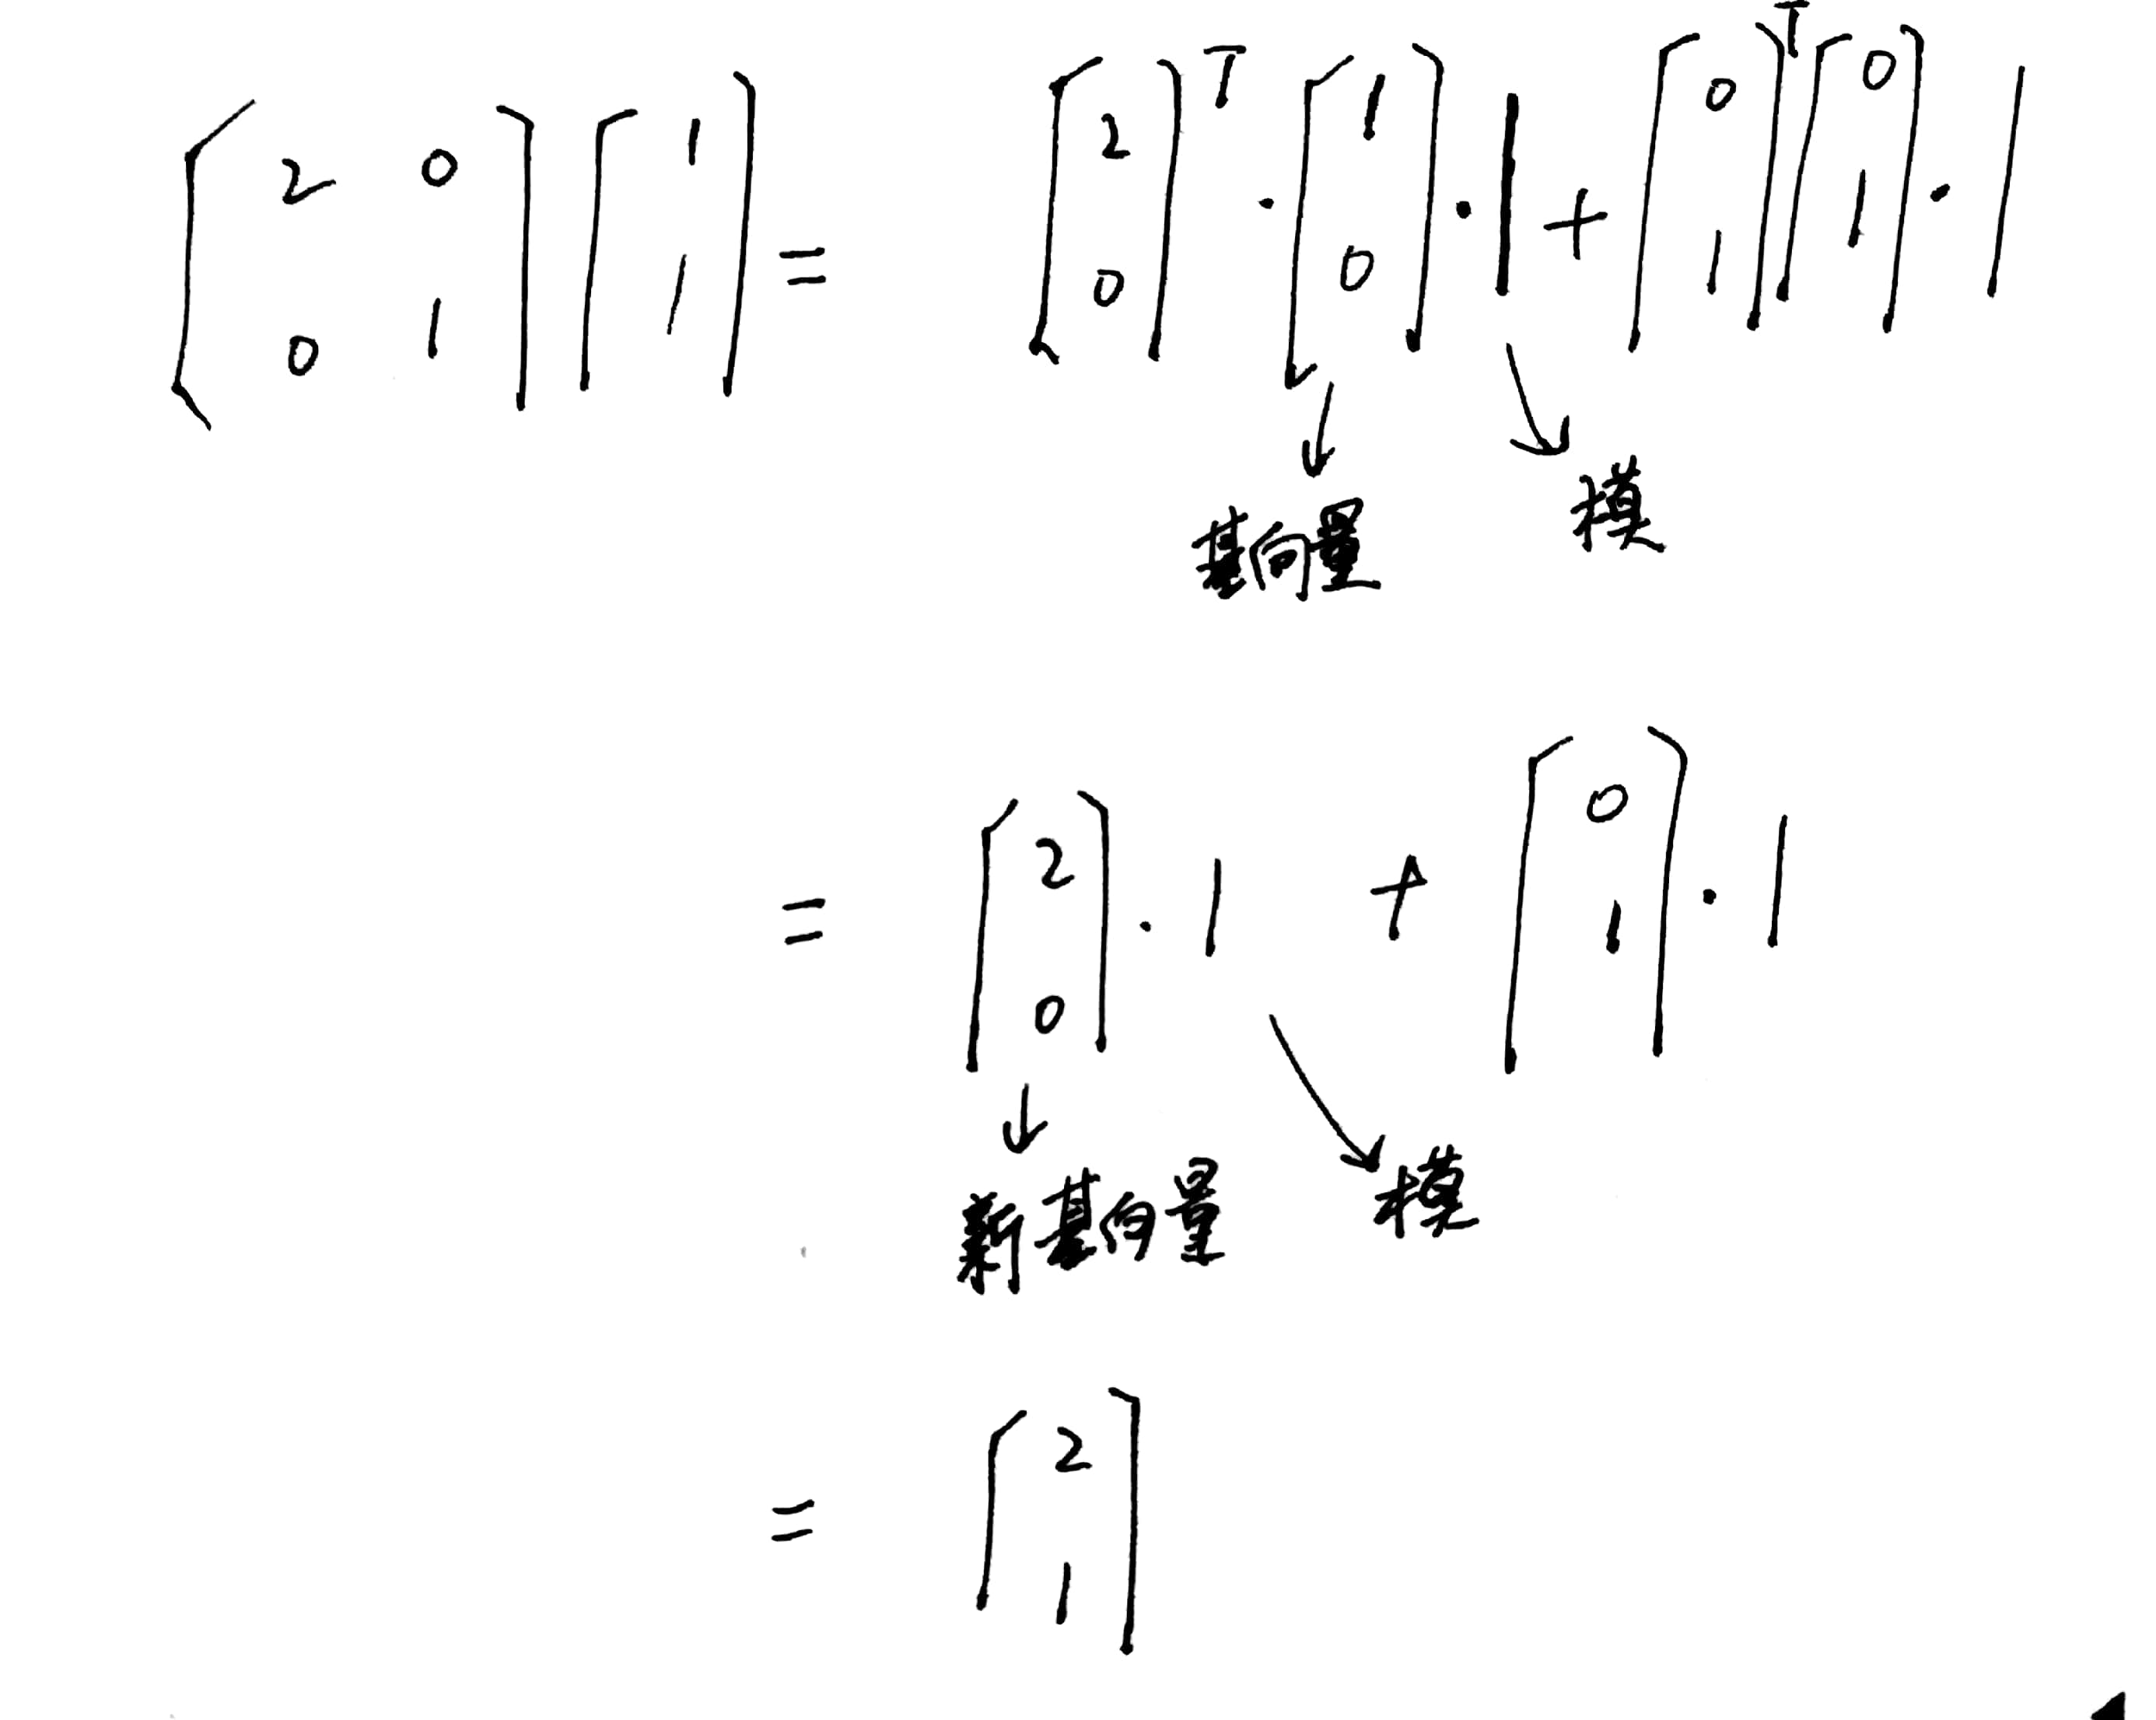 [2 0; 0 1] [1; 1] = [2; 0]^T · [1; 0] · 1 + [0; 1]^T [0; 1] · 1
基向量 模
= [2; 0] · 1 + [0; 1] · 1
新基向量 模
= [2; 1]